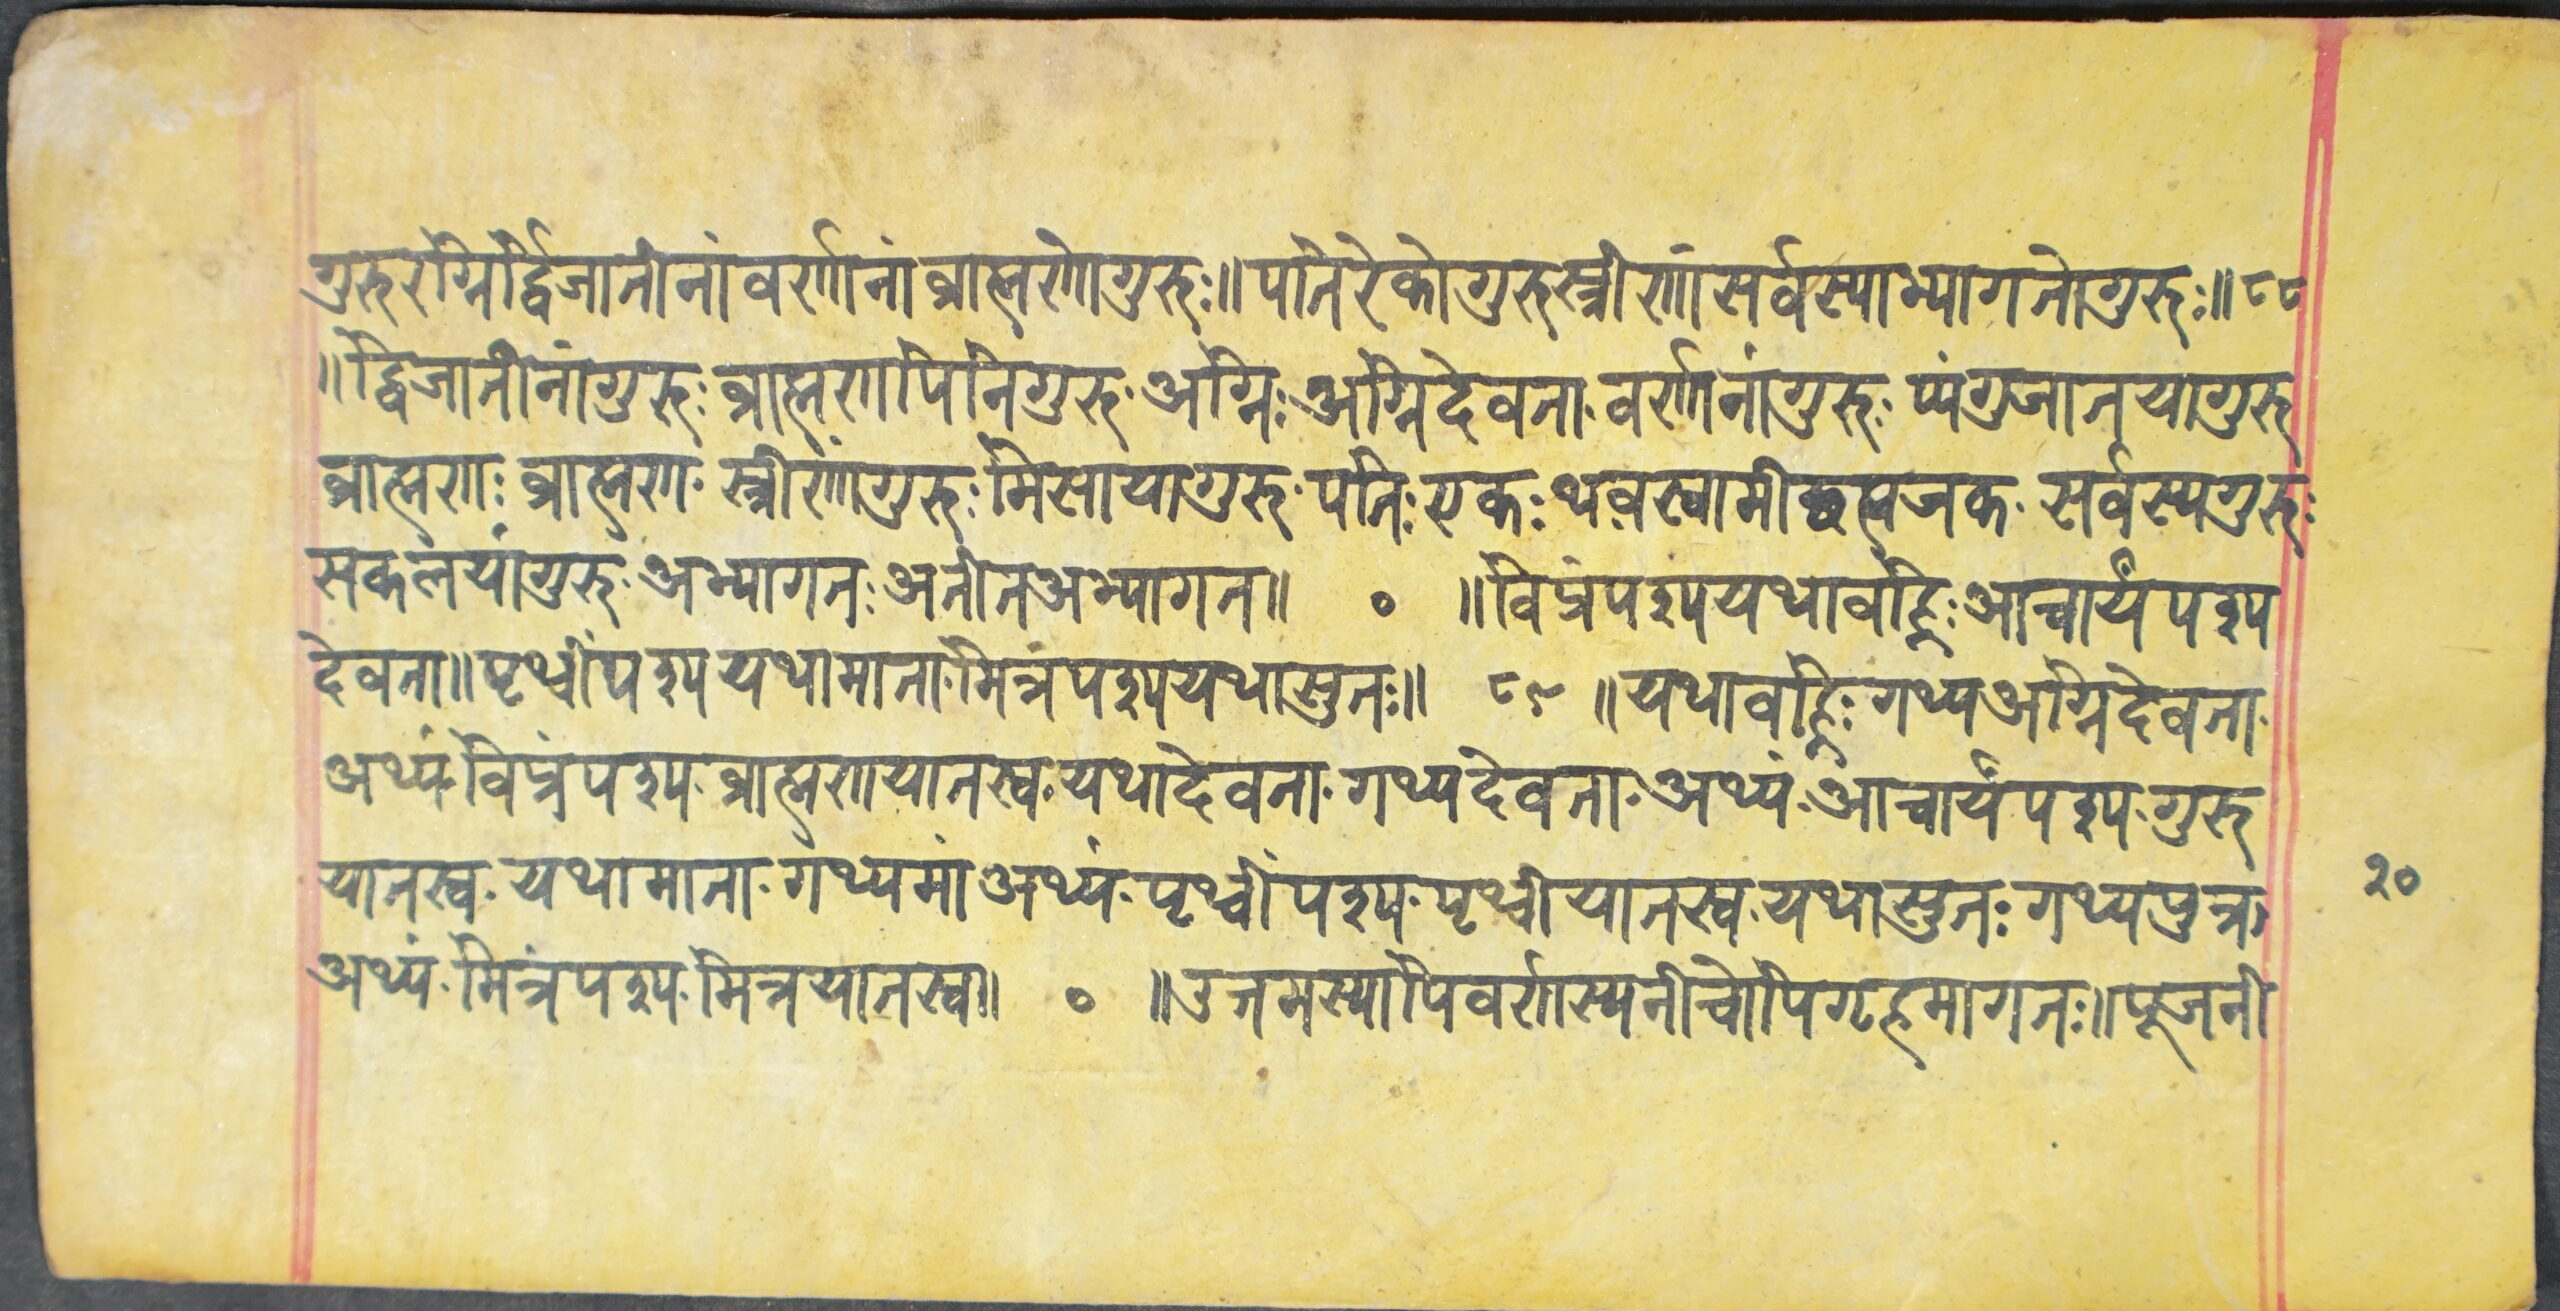 गुरुरग्निर्द्विजातीनां वर्णानां ब्राह्मणो गुरुः॥ पतिरेको गुरुस्त्रीणां सर्वस्याभ्यागतो गुरुः॥ ८८
॥ द्विजातीनां गुरुः ब्राह्मणपिनिगुरु· अग्निः अग्निदेवता· वर्णानां गुरुः प्यंगुजातयागुरु
ब्राह्मणः ब्राह्मण· स्त्रीणां गुरुः मिसायागुरु· पतिः एकः थवस्वामी छह्मजक· सर्वस्य गुरुः
सकलयां गुरु· अभ्यागतः अतीतअभ्यागत॥ ० ॥ विप्रं पश्य यथा वह्निः आचार्यं पश्य
देवता॥ पृथ्वीं पश्य यथा माता· मित्रं पश्य यथा सुतः॥ ८९ ॥ यथा वह्निः गथ्य अग्निदेवता·
अथ्यं· विप्रं पश्य· ब्राह्मणयात स्व· यथा देवता· गथ्य देवता· अथ्यं· आचार्यं पश्य· गुरु
यात स्व· यथा माता· गथ्य मां अथ्यं· पृथ्वीं पश्य· पृथ्वीयात स्व· यथा सुतः गथ्य पुत्र·
अथ्यं· मित्रं पश्य· मित्रयात स्व॥ ० ॥ उत्तमस्यापि वर्णस्य नीचोपि गृहमागतः॥ पूजनी
२०